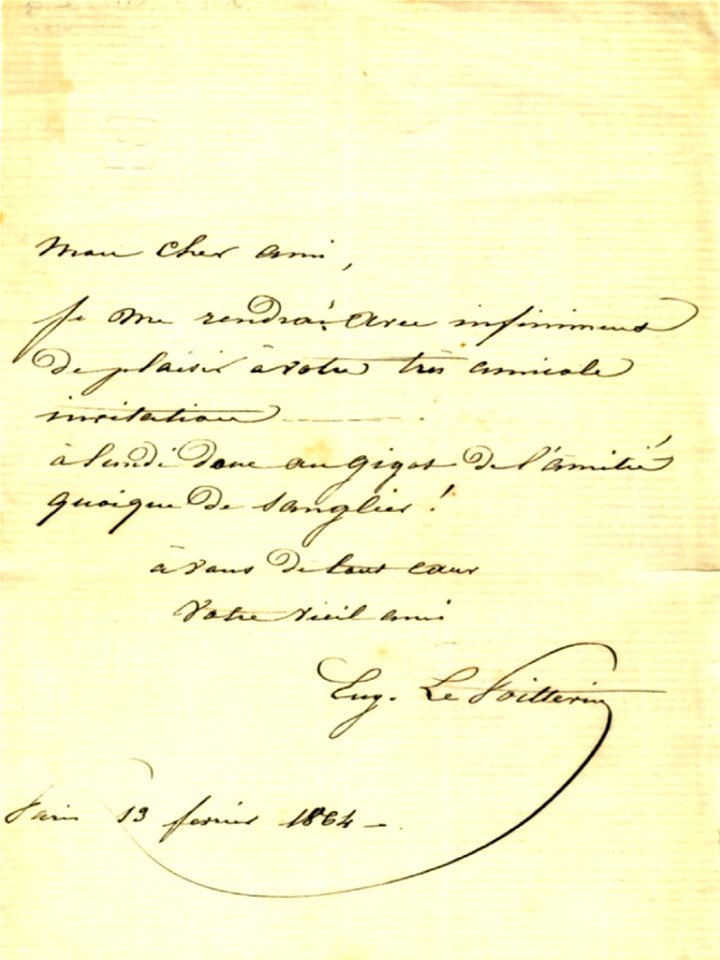 Mon cher ami,
Je me rendrai avec infiniment
de plaisir à votre très amicale
invitation ————.
à lundi donc au gigot de l'amitié
quoique de sanglier !
à vous de tout cœur
votre vieil ami
Eug. Le Poittevin
Paris 13 fevrier 1864 —.